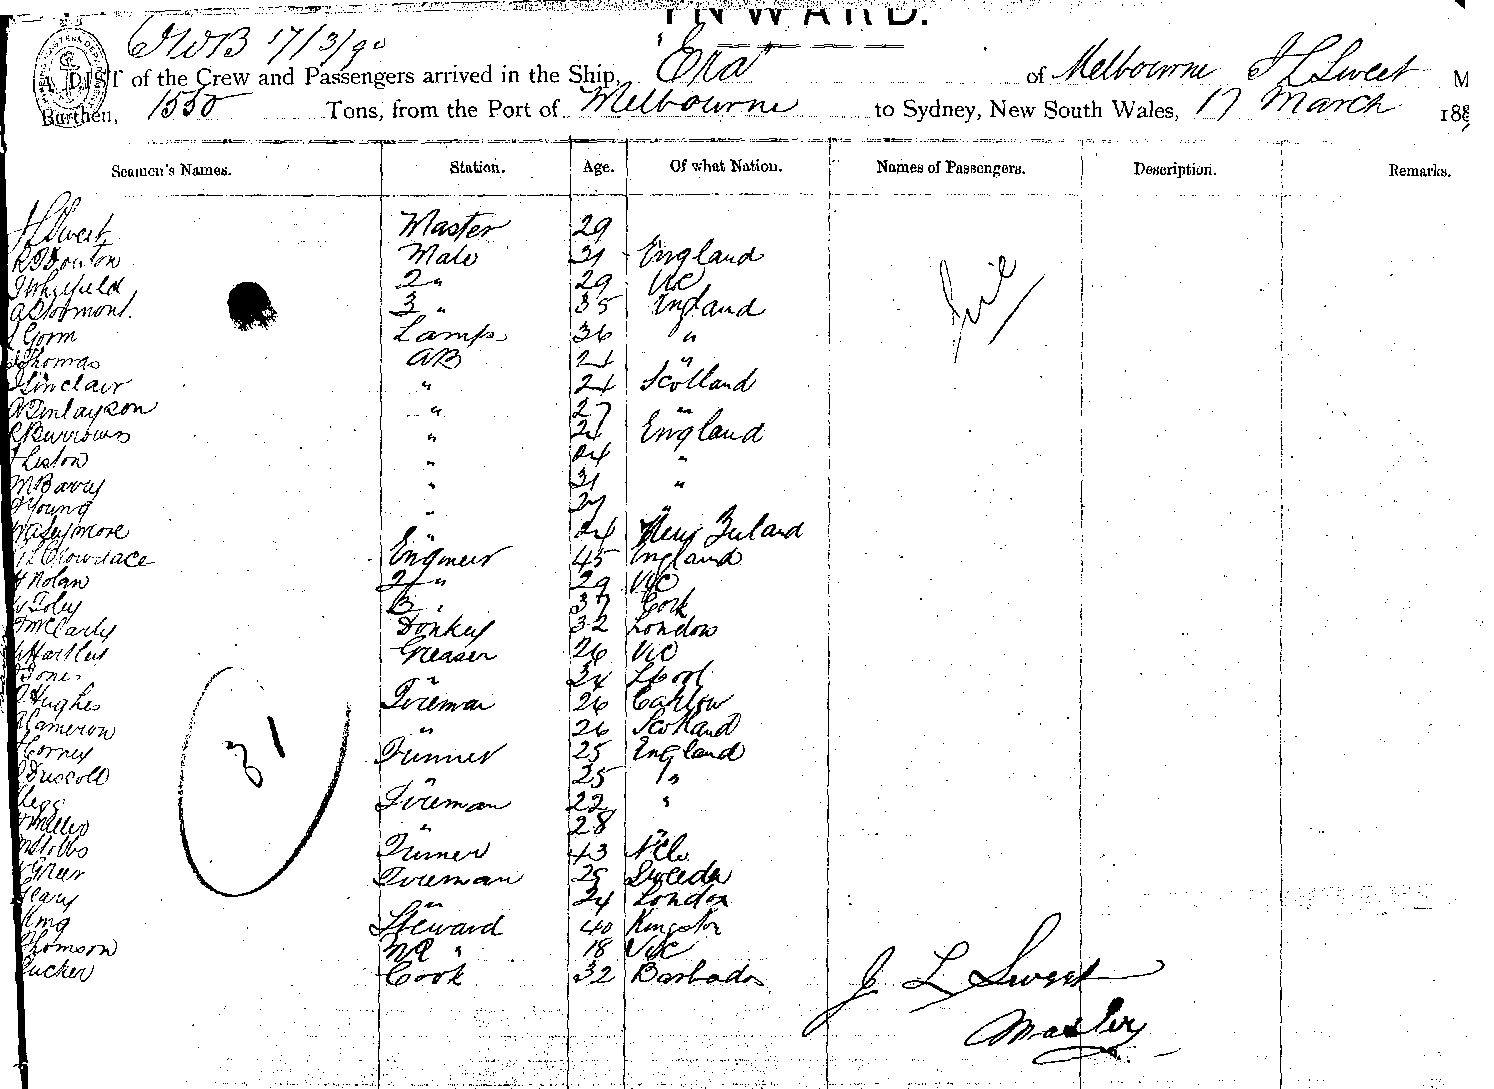 INWARD.
JWB 17/3/90
A LIST of the Crew and Passengers arrived in the Ship, Era of Melbourne J L Sweet M
Burthen, 1550 Tons, from the Port of Melbourne to Sydney, New South Wales, 17 March 188
Seamen's Names. Station. Age. Of what Nation. Names of Passengers. Description. Remarks.
J L Sweet Master 29
Mate 31 England
2 " 29 Vic
3 " 35 England
Gorm Lamps 36 "
Thomas AB 21 "
J Sinclair " 24 Scotland
A Finlayson " 27 "
Burrows " 21 England
Liston " 24 "
M Barry " 31 "
Young " 27 "
" 24 New Zealand
Crowdace Engineer 45 England
Nolan 2 " 29 Vic
Foley 3 " 37 Cork
McCarty Donkey 32 London
Hartley Greaser 26 Vic
Jones " 34 L'pool
Hughes Fireman 26 Carlow
Cameron " 26 Scotland
Corney Trimmer 25 England
Driscoll " 25 "
Clegg Fireman 22 "
" 28 "
Stobbs Trimer 43 N'Cle
Greer Fireman 25 Sweden
Geary " 24 London
King Steward 40 Kingston
Thomson " 18 Vic
Tucker Cook 32 Barbados
Nil
31
J L Sweet
Master